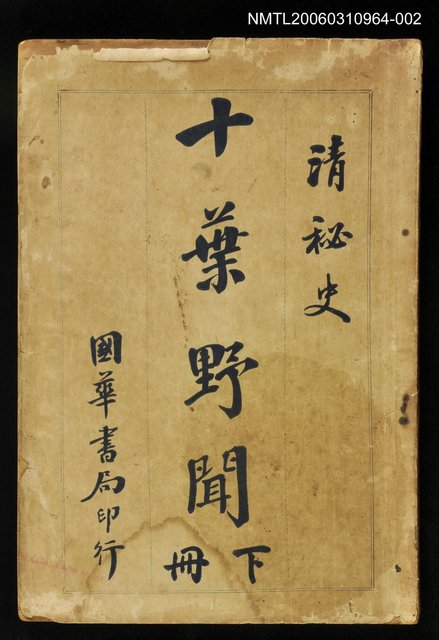 NMTL20060310964-002
清秘史
十葉野聞
下冊
國華書局印行